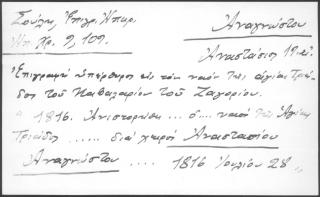 Σούλης, Ἐπιγρ. Ἠπειρ.
Ἠπ. Χρ. 9, 109.
Ἀναγνώστου
Ἀναστάσιος 19 αἰ.
Ἐπιγραφὴ ὑπέρθυρη εἰς τὸν ναὸν τῆς ἁγίας Τριά-
δος τοῦ τοῦ Ζαγορίου.
" 1816. Ἀνιστορήθη ... ὁ .... ναὸς τῆς Ἁγίας
Τριάδος ...... διὰ χειρὸς Ἀναστασίου
Ἀναγνώστου .... 1816 Ἰουλίου 28 "